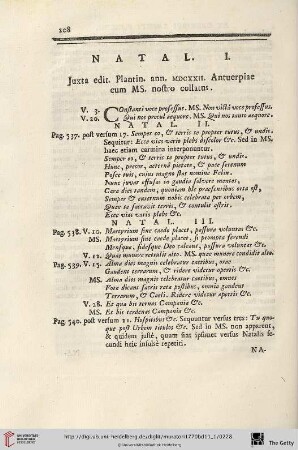 208
NATAL. I.
Juxta edit. Plantin. ann. MDCXXII. Antuerpiae
cum MS. nostro collatus.
V. 3. Constanti voce professus. MS. Non victâ voce professus.
V. 20. Qui nos procul sequare. MS. Qui nos sequare.
NATAL. II.
Pag. 537. post versum 17. Semper eo, & terris te propter tutus, & undis.
Sequitur: Ecce vias variis plebs discolor &c. Sed in MS.
haec etiam carmina interponuntur.
Semper eo, & terris te propter tutus, & undis.
Hunc, precor, aeterná pietate, & pace serenum
Posce tuis, cujus magno stat nomine Felix.
Nunc juvat effusas in gaudia solvere mentes,
Cara dies tandem, quoniam hîc praesentibus orta est,
Semper & externum nobis celebrata per orbem,
Quae te sacravit terris, & contulit astris.
Ecce vias variis plebs &c.
NATAL. III.
Pag. 538. V. 10. Martyrium sine caede placet, passura voluntas &c.
MS. Martyrium sine caede placet, si prompta ferendi
Mensque, fidesque Deo caleant, passura voluntas &c.
V. 12. Quas munere retulit alto. MS. quae munere condidit alto.
Pag. 539. V. 15. Alma dies magnis celebratur coetibus, omnes
Gaudent terrarum, & ridere videtur apertis &c.
MS. Alma dies magnis celebratur coetibus, omnes
Vota dicant sacris rata postibus, omnia gaudent
Terrarum, & Coeli. Ridere videtur apertis &c.
V. 28. Et qua bis ternas Campania &c.
MS. Et bis terdenas Campania &c.
Pag. 540. post versum 11. Hospitibus &c. Sequuntur versus tres: Tu quo-
que post Urbem titulos &c. Sed in MS. non apparent,
& quidem justè, quum sint ipsimet versus Natalis se-
cundi heic insulsè repetiti.
NA-
UNIVERSITÄTS-
BIBLIOTHEK
HEIDELBERG
The Getty